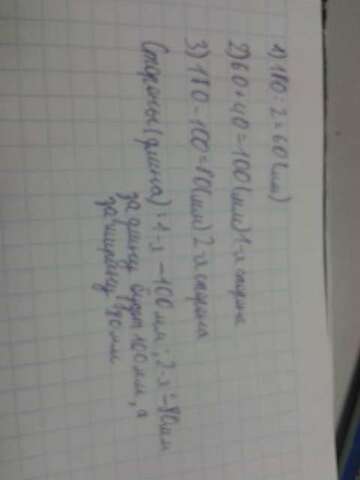 1) 180 : 2 = 60 (мм)
2) 60 + 40 = 100 (мм) 1-я сторона
3) 180 - 100 = 80 (мм) 2-я сторона
Стороны (длина): 1-я - 100 мм, 2-я - 80 мм
за длину будет 100 мм, а
за ширину 80 мм